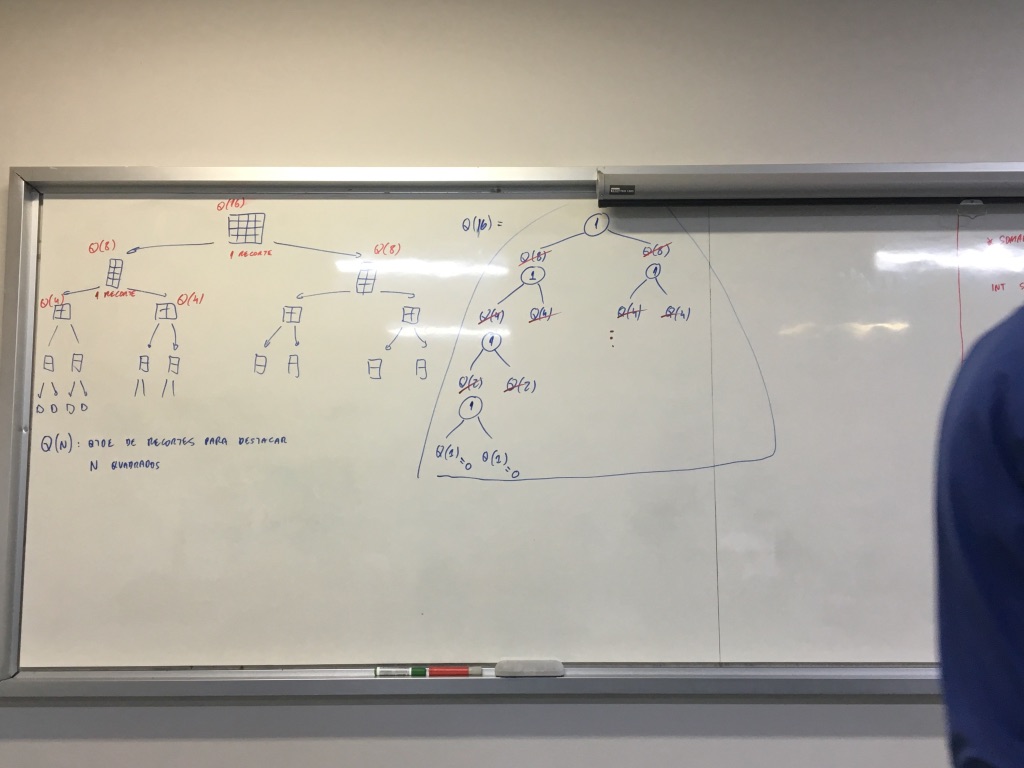 Q(16)
1 RECORTE
Q(8)
Q(8)
1 RECORTE
Q(4)
Q(4)
Q(N): QTDE DE RECORTES PARA DESTACAR
N QUADRADOS
Q(16) =
1
Q(8)
Q(8)
1
1
Q(4)
Q(4)
Q(4)
Q(4)
1
Q(2)
Q(2)
1
Q(1)=0
Q(1)=0
INT S